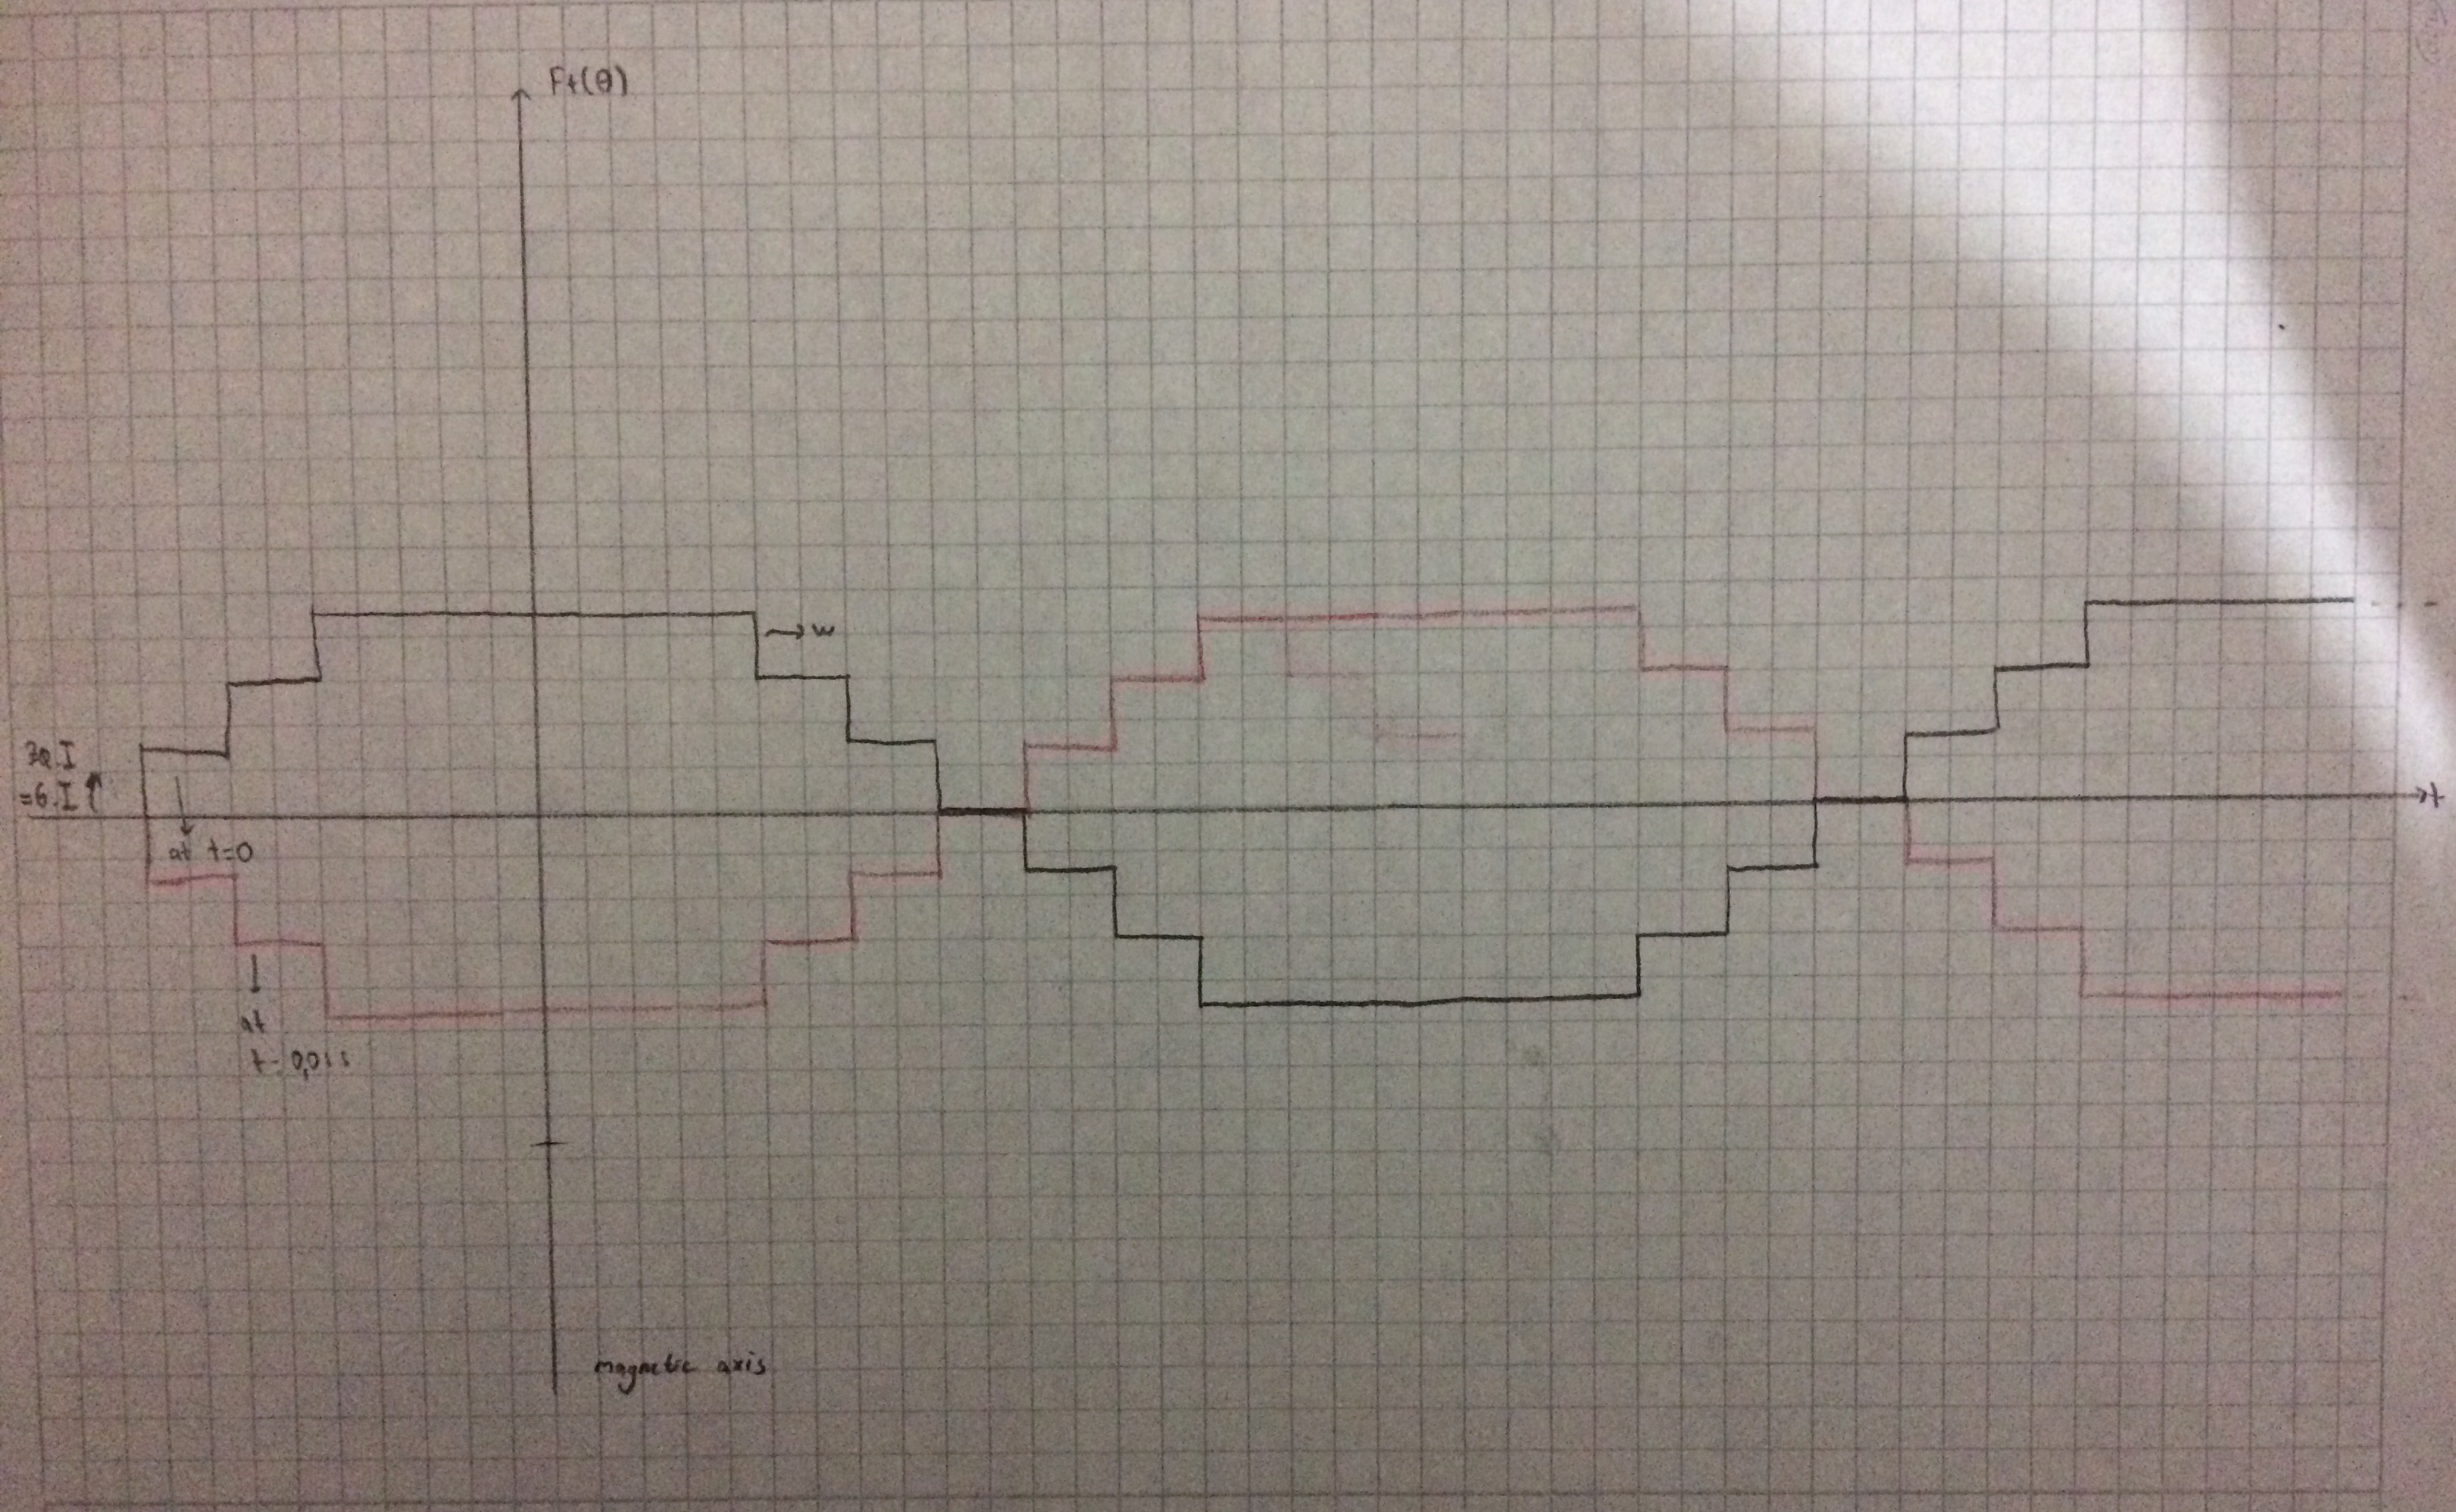 Ft(θ)
→ w
3Q.I
=6.I ↑
at t=0
→t
at
t=0,01s
magnetic axis